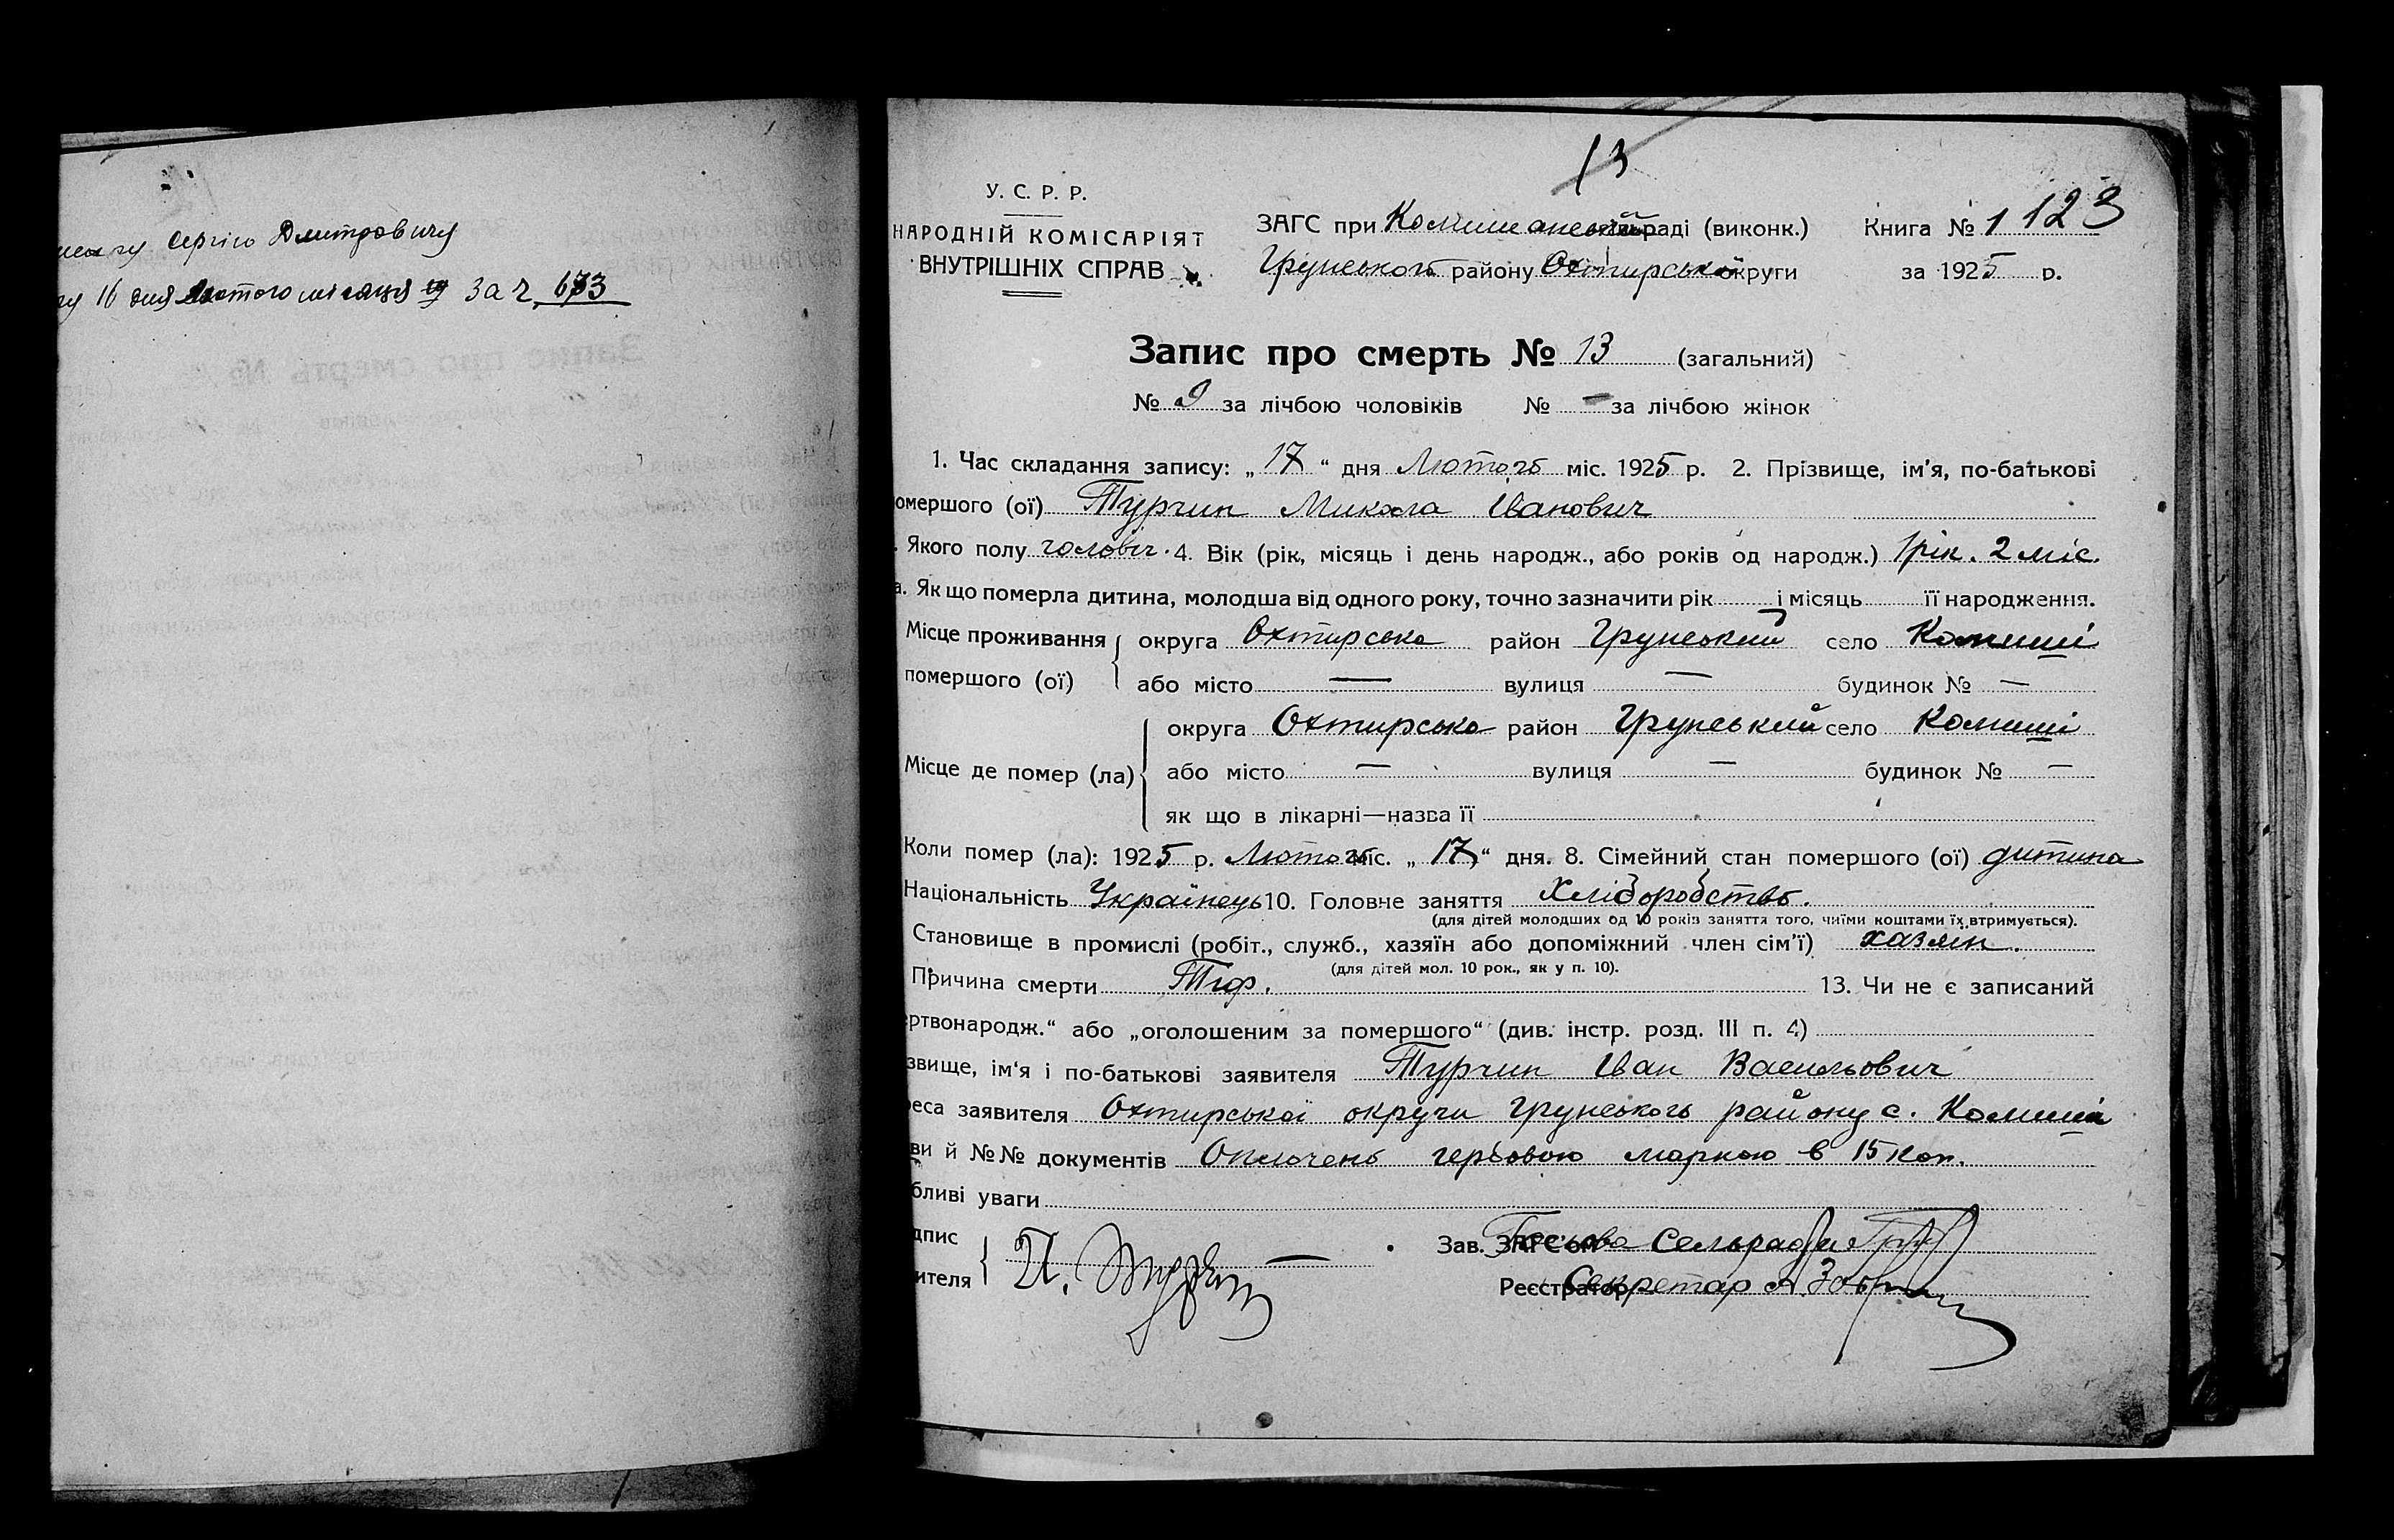 Сергію Дмитровичу
16 дня лютого місяця за ч. 673
13
У. С. Р. Р.
НАРОДНІЙ КОМІСАРІЯТ
ВНУТРІШНІХ СПРАВ
ЗАГС при Комишанській раді (виконк.)
Грунського району Охтирської округи
Книга № 1 123
за 1925 р.
Запис про смерть № 13 (загальний)
№ 9 за лічбою чоловіків № — за лічбою жінок
1. Час складання запису: „17“ дня Лютого міс. 1925 р. 2. Прізвище, ім'я, по-батькові
омершого (ої) Турчин Микола Іванович
. Якого полу чоловіч. 4. Вік (рік, місяць і день народж., або років од народж.) 1 рік. 2 міс.
а. Як що померла дитина, молодша від одного року, точно зазначити рік і місяць її народження.
Місце проживання помершого (ої) { округа Охтирська район Грунський село Комиші
або місто — вулиця — будинок № —
Місце де помер (ла) { округа Охтирська район Грунський село Комиші
або місто — вулиця — будинок № —
як що в лікарні—назва її
Коли помер (ла): 1925 р. Лютого міс. „17“ дня. 8. Сімейний стан помершого (ої) дитина
Національність Українець 10. Головне заняття Хліборобство.
(для дітей молодших од 10 років заняття того, чиїми коштами їх втримується).
Становище в промислі (робіт., служб., хазяїн або допоміжний член сім'ї) хазяїн.
(для дітей мол. 10 рок., як у п. 10).
Причина смерти Тіф. 13. Чи не є записаний
ертвонародж.“ або „оголошеним за помершого“ (див. інстр. розд. III п. 4)
звище, ім'я і по-батькові заявителя Турчин Іван Васильович
реса заявителя Охтирської округи Грунського району с. Комиші
ви й №№ документів Оплочено гербовою маркою в 15 коп.
бливі уваги
дпис
ителя { И. Турчин — Зав. ЗАГС'ом Голова Сельради
Реєстратор Секретар А.